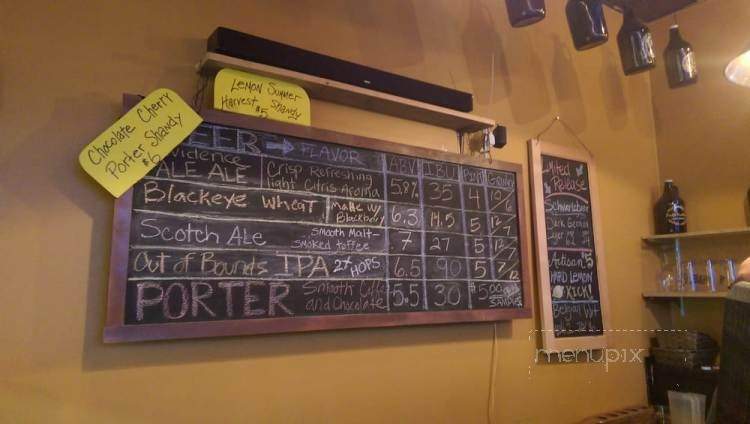 Chocolate Cherry
Porter Shandy
$6
Lemon Summer
Harvest Shandy
$5
BEER → FLAVOR ABV IBU Pint Growler
Providence
PALE ALE Crisp Refreshing
light Citris Aroma 5.8% 35 4
Blackeye Wheat made w/
Blackberry 6.3 14.5 5 12/7
Scotch Ale Smooth Malt-
smoked toffee 7 27 5 12/7
Out of Bounds IPA 27 HOPS 6.5 90 5 7/12
PORTER Smooth Coffee
and Chocolate 5.5 30 $5.00
SAMPLES
Limited
Release
Schwarzbier
Dark German
Artisan $5
HARD LEMON
KICK!
Belgian Wit
menupix